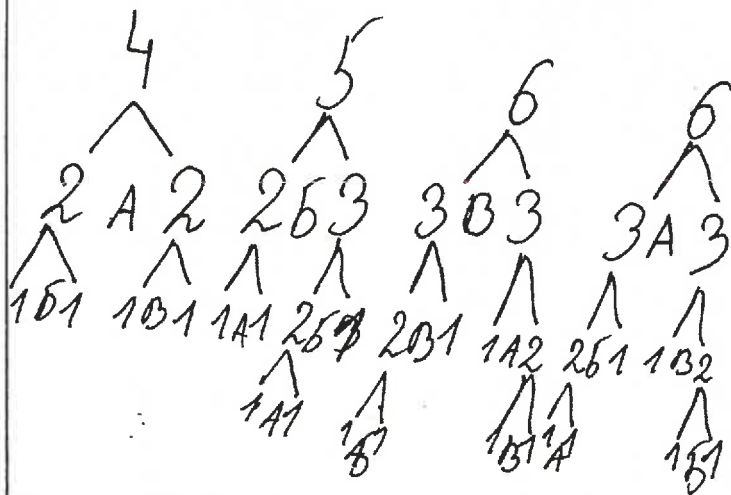 4 5 6 6
2 А 2 2 Б 3 3 В 3 3 А 3
1Б1 1В1 1А1 2Б 2В1 1А2 2Б1 1В2
1А1 1Б1 1В1 1А1 1Б1